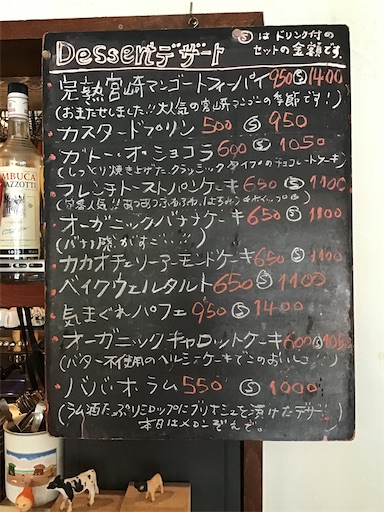 Dessertデザート
Ⓢは ドリンク付の
セットの金額です。
完熟宮崎マンゴートフィーパイ 950 Ⓢ1400
(おまたせしました!!大人気の宮崎マンゴーの季節です!)
カスタードプリン 500 Ⓢ 950
ガトー・オ・ショコラ 600 Ⓢ 1050
(しっとり焼き上げたクラシックタイプのチョコレートケーキ)
フレンチトーストパンケーキ 650 Ⓢ 1100
オーガニックバナナケーキ 650 Ⓢ 1100
(バナナ感がすごい…!!)
カカオチェリーアーモンドケーキ 650 Ⓢ 1100
ベイクウェルタルト 650 Ⓢ 1100
気まぐれパフェ 950 Ⓢ 1400
オーガニックキャロットケーキ 600 Ⓢ 1050
(バター不使用のヘルシーケーキでこのおいしさ
ババ・オ・ラム 550 Ⓢ 1000
(ラム酒たっぷりシロップにブリオッシュを漬けたデザート
本日はメロンぞえで。)
MBUCA
RAZZOTTI